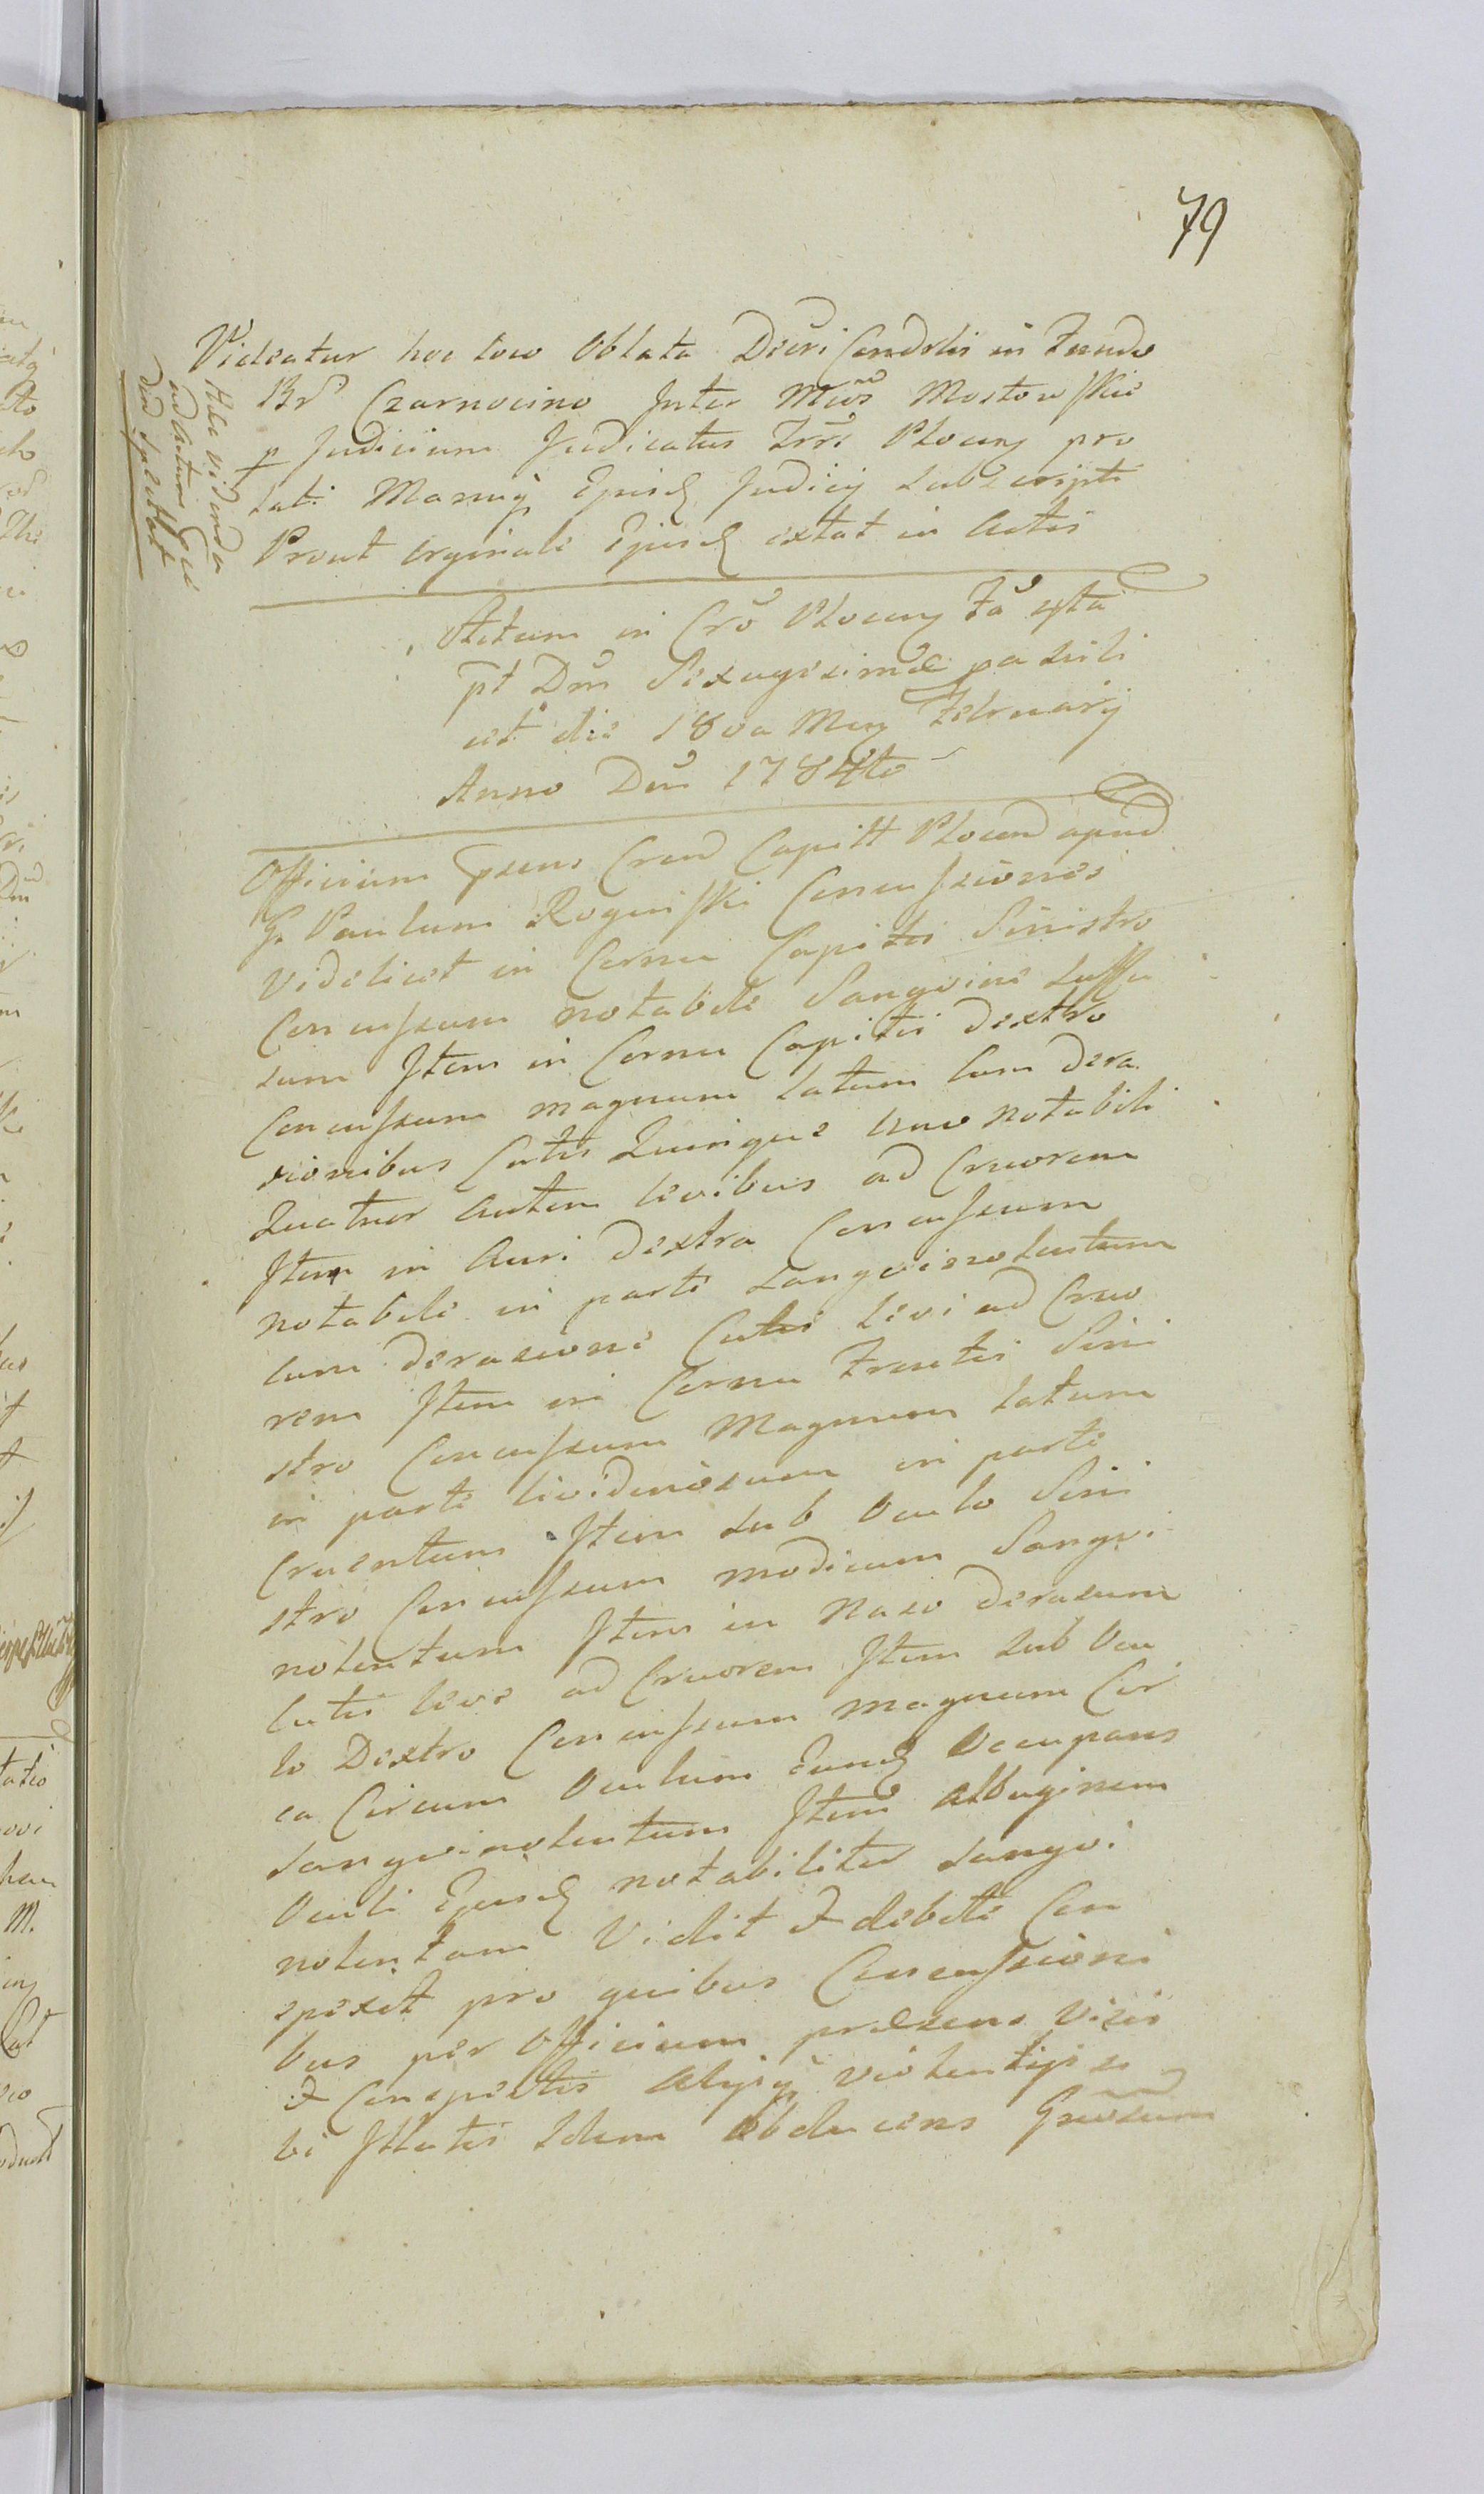 79
Videatur hoc loco Oblata Decri Condrlis in Fundo
Br. Czarnocino Inter Mcos Mostowskie
p Judicium Judicatus Trris Plocen pro
lati Manuq Ejusd Judicij subscripti
Prout orginale Ejusd extat in Actis
Hic videnda
ad Actum
Dnd spectat
Actum in Cro Plocen Fa 4ta
pt Dm Sexagesimæ paschli
uet die 18va Men February
Anno Dni 1784to
Officium psens Cren Capitt Plocen apud
G. Paulum Roguiski Concussiones
videlicet in Cornu Capitis Sinistro
Concussum notabile Sangvine suffu
sum Item in Cornu Capitis dextro
Concussum magnum latum Cum dera
sionibus Cutis Quinque una notabili
Quatuor autem levibus ad Cruorem
Item in Auri dextra Concussum
notabile in parte sangvinolentum
Cum derasione Cutis levi ad Cruo
rem Item in Cornu Frontis Sini
stro Concussum Magnum latum
in parte lividinosum in parte
Cruentum Item sub Oculo Sini
stro Concussum modicum Sangvi
nolentum Item in Naso derasum
Cutis leve ad Cruorem Item sub Ocu
lo Dextro Concussum magnum Cir
ca Circum Oculum Eund Occupans
sangvinolentum Item Albuginem
Oculi Ejusd notabiliter sangvi
nolentam Vidit & debite Con
spexit pro quibus Concussioni
bus per Officium præsens Visis
& Conspectis Alysq violentijs si
bi Illatis Idem Obducens Gnosum